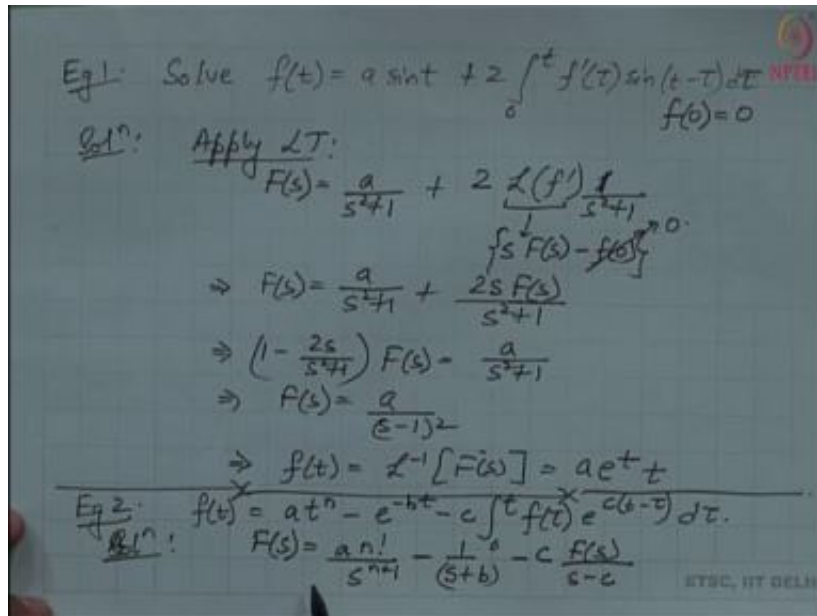 Eg 1. Solve f(t) = a sin t + 2 ∫₀ᵗ f'(τ) sin(t-τ) dτ NPTEL
f(0) = 0
Solⁿ: Apply LT:
F(s) = a/(s²+1) + 2 L(f') 1/(s²+1)
{s F(s) - f(0)} → 0.
⇒ F(s) = a/(s²+1) + 2s F(s)/(s²+1)
⇒ (1 - 2s/(s²+1)) F(s) = a/(s²+1)
⇒ F(s) = a/(s-1)²
⇒ f(t) = L⁻¹[F(s)] = a eᵗ t
Eg 2. f(t) = a tⁿ - e^(-bt) - c ∫₀ᵗ f(τ) e^(c(t-τ)) dτ.
Solⁿ: F(s) = a n!/s^(n+1) - 1/(s+b) - c F(s)/(s-c)
ETSC, IIT DELHI